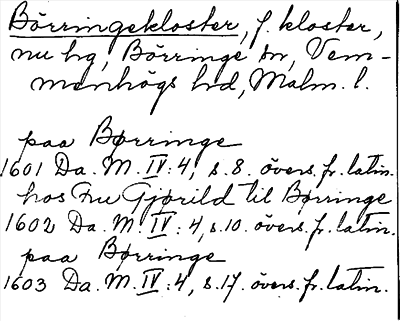 Börringekloster, f. kloster,
nu hg, Börringe sn, Vem-
menhögs hd, Malm. l.
paa Børringe
1601 Da. M. IV: 4, s. 8. övers. fr. latin.
hos Fru Gjørild til Børringe
1602 Da. M. IV: 4, s. 10. övers. fr. latin.
paa Børringe
1603 Da. M. IV: 4, s. 17. övers. fr. latin.